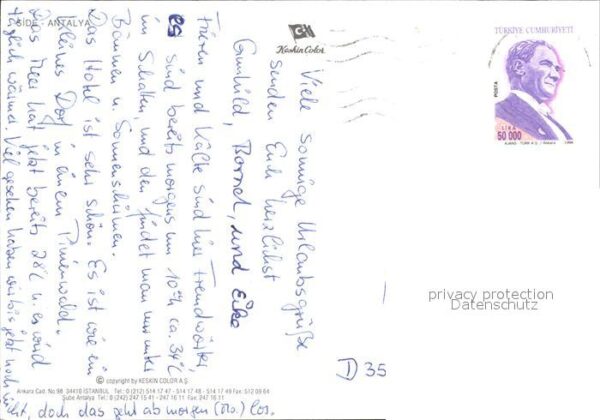 SIDE - ANTALYA
Keskin Color
TÜRKİYE CUMHURİYETİ
POSTA
LİRA
50 000
AJANS - TÜRK A.Ş. / Ankara 1994
Viele sonnige Urlaubsgrüße
senden Euch herzlichst
Gunhild, Bernd, und Eike
Frieren und Kälte sind hier Fremdwörter
es sind bereits morgens um 10 Uh ca. 34°C
im Schatten, und den findet man nur unter
Bäumen u. Sonnenschirmen.
Das Hotel ist sehr schön. Es ist wie ein
kleines Dorf in einem Pinienwald.
Das Meer hat jetzt bereits 28°C u. es wird
täglich wärmer. Viel gesehen haben wir bis jetzt noch
nicht, doch das geht ab morgen (Mo.) los.
D 35
privacy protection
Datenschutz
© copyright by KESKİN COLOR A.Ş.
Ankara Cad. No 98 34410 İSTANBUL Tel: 0 (212) 514 17 47 - 514 17 48 - 514 17 49 Fax: 512 09 64
Şube Antalya Tel : 0 (242) 247 15 41 - 247 15 16 Fax: